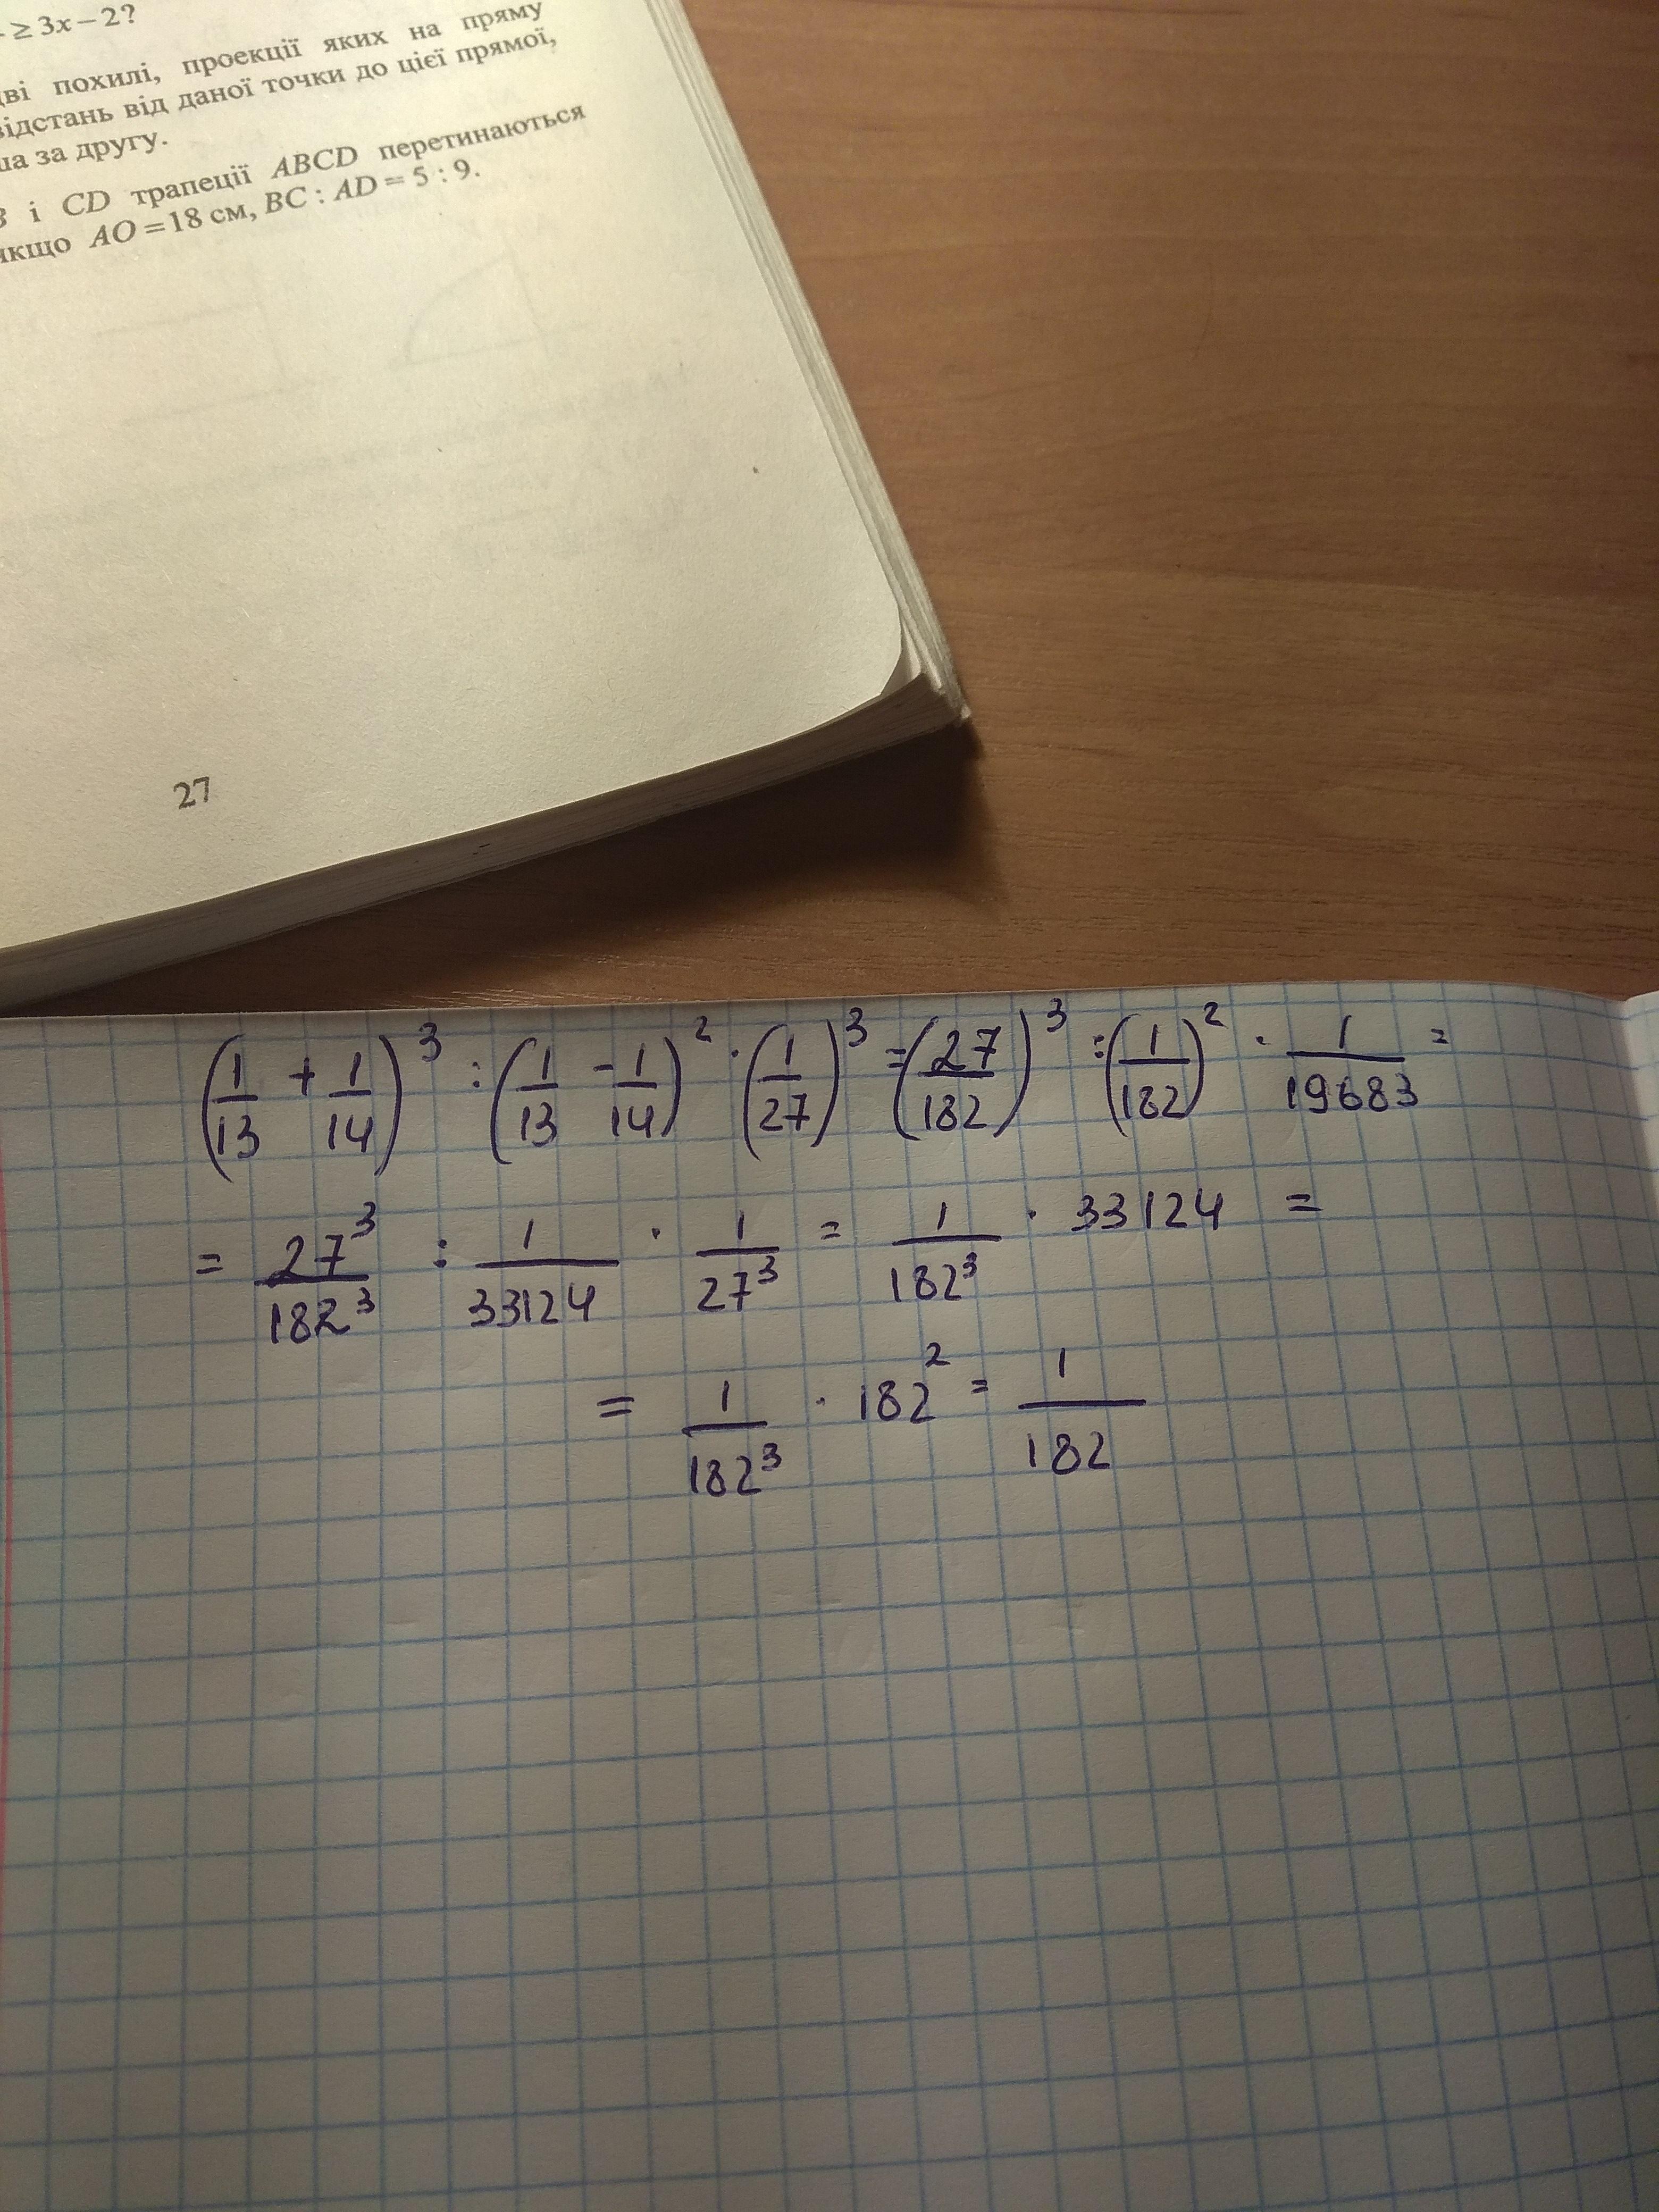 ≥ 3x − 2?
дві похилі, проекції яких на пряму
відстань від даної точки до цієї прямої,
за другу.
і CD трапеції ABCD перетинаються
якщо AO = 18 см, BC : AD = 5 : 9.
27
(1/13 + 1/14)³ : (1/13 − 1/14)² · (1/27)³ = (27/182)³ : (1/182)² · 1/19683 =
= 27³/182³ : 1/33124 · 1/27³ = 1/182³ · 33124 =
= 1/182³ · 182² = 1/182